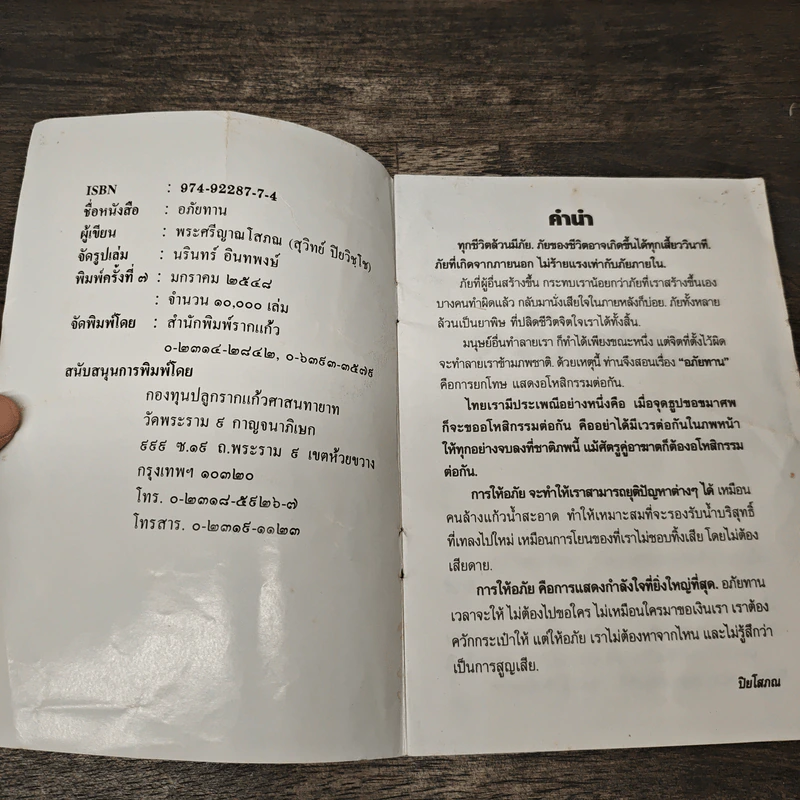 ISBN : 974-92287-7-4
ชื่อหนังสือ : อภัยทาน
ผู้เขียน : พระศรีญาณโสภณ (สุวิทย์ ปิยวิชฺโช)
จัดรูปเล่ม : นรินทร์ อินทพงษ์
พิมพ์ครั้งที่ ๗ : มกราคม ๒๕๔๘
: จำนวน ๑๐,๐๐๐ เล่ม
จัดพิมพ์โดย : สำนักพิมพ์รากแก้ว
๐-๒๓๑๔-๒๘๔๒, ๐-๖๓๙๓-๓๕๗๙
สนับสนุนการพิมพ์โดย
กองทุนปลูกรากแก้วศาสนทายาท
วัดพระราม ๙ กาญจนาภิเษก
๙๙๙ ซ.๑๙ ถ.พระราม ๙ เขตห้วยขวาง
กรุงเทพฯ ๑๐๓๒๐
โทร. ๐-๒๓๑๘-๕๙๒๖-๗
โทรสาร. ๐-๒๓๑๙-๑๑๒๓
คำนำ
ทุกชีวิตล้วนมีภัย. ภัยของชีวิตอาจเกิดขึ้นได้ทุกเสี้ยววินาที.
ภัยที่เกิดจากภายนอก ไม่ร้ายแรงเท่ากับภัยภายใน.
ภัยที่ผู้อื่นสร้างขึ้น กระทบเราน้อยกว่าภัยที่เราสร้างขึ้นเอง
บางคนทำผิดแล้ว กลับมานั่งเสียใจในภายหลังก็บ่อย. ภัยทั้งหลาย
ล้วนเป็นยาพิษ ที่ปลิดชีวิตจิตใจเราได้ทั้งสิ้น.
มนุษย์อื่นทำลายเรา ก็ทำได้เพียงขณะหนึ่ง แต่จิตที่ตั้งไว้ผิด
จะทำลายเราข้ามภพชาติ. ด้วยเหตุนี้ ท่านจึงสอนเรื่อง "อภัยทาน"
คือการยกโทษ แสดงอโหสิกรรมต่อกัน.
ไทยเรามีประเพณีอย่างหนึ่งคือ เมื่อจุดธูปขอขมาศพ
ก็จะขออโหสิกรรมต่อกัน คืออย่าได้มีเวรต่อกันในภพหน้า
ให้ทุกอย่างจบลงที่ชาติภพนี้ แม้ศัตรูคู่อาฆาตก็ต้องอโหสิกรรม
ต่อกัน.
การให้อภัย จะทำให้เราสามารถยุติปัญหาต่างๆ ได้ เหมือน
คนล้างแก้วน้ำสะอาด ทำให้เหมาะสมที่จะรองรับน้ำบริสุทธิ์
ที่เทลงไปใหม่ เหมือนการโยนของที่เราไม่ชอบทิ้งเสีย โดยไม่ต้อง
เสียดาย.
การให้อภัย คือการแสดงกำลังใจที่ยิ่งใหญ่ที่สุด. อภัยทาน
เวลาจะให้ ไม่ต้องไปขอใคร ไม่เหมือนใครมาขอเงินเรา เราต้อง
ควักกระเป๋าให้ แต่ให้อภัย เราไม่ต้องหาจากไหน และไม่รู้สึกว่า
เป็นการสูญเสีย.
ปิยโสภณ